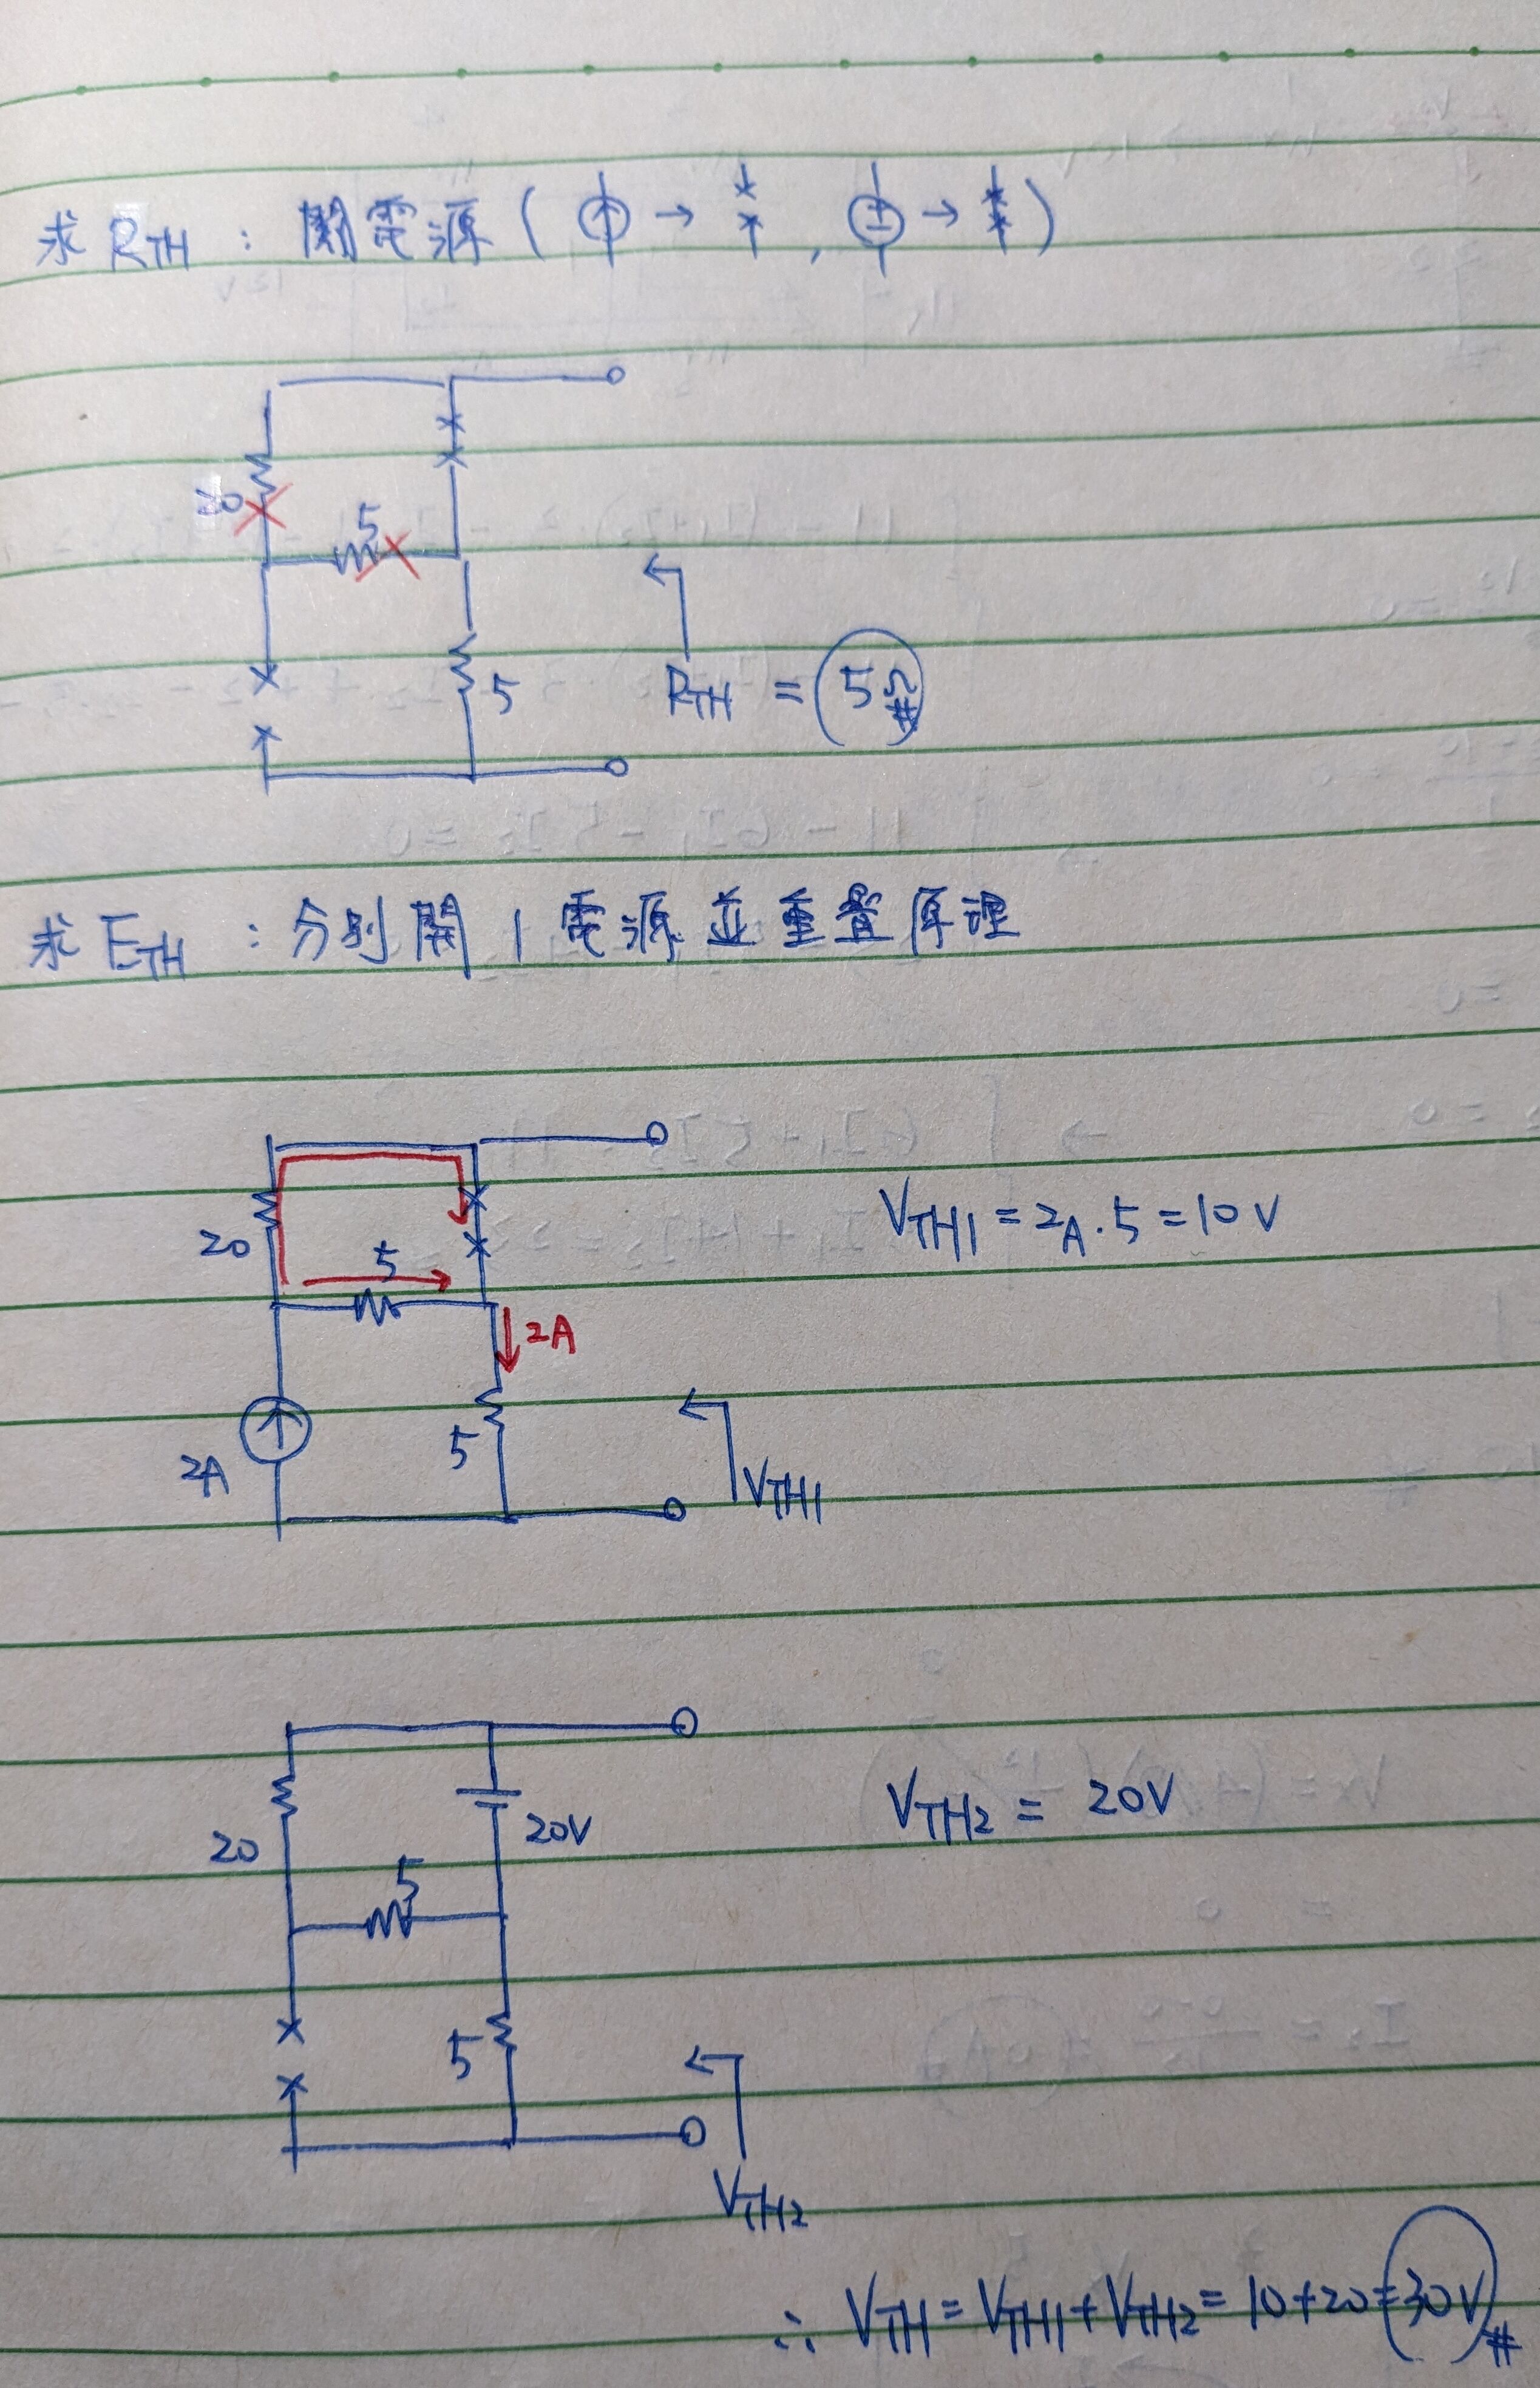 求 RTH : 關電源 ( → , → )
20
5
5
RTH = 5Ω#
求 ETH : 分別開 1 電源並重疊原理
20
5
2A
5
2A
VTH1
VTH1 = 2A . 5 = 10V
20
20V
5
5
VTH2
VTH2 = 20V
∴ VTH = VTH1 + VTH2 = 10 + 20 = 30V#